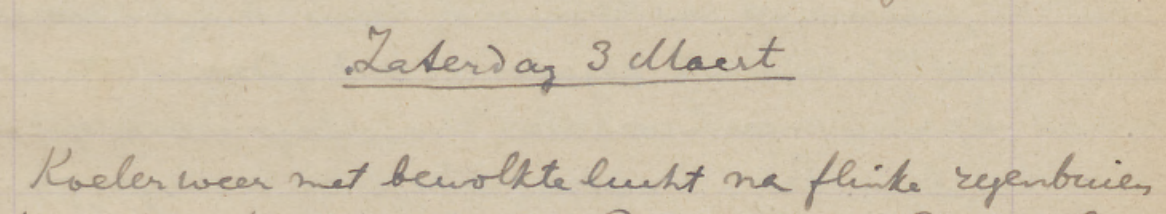 Zaterdag 3 Maart
Koeler weer met bewolkte lucht na flinke regenbuien